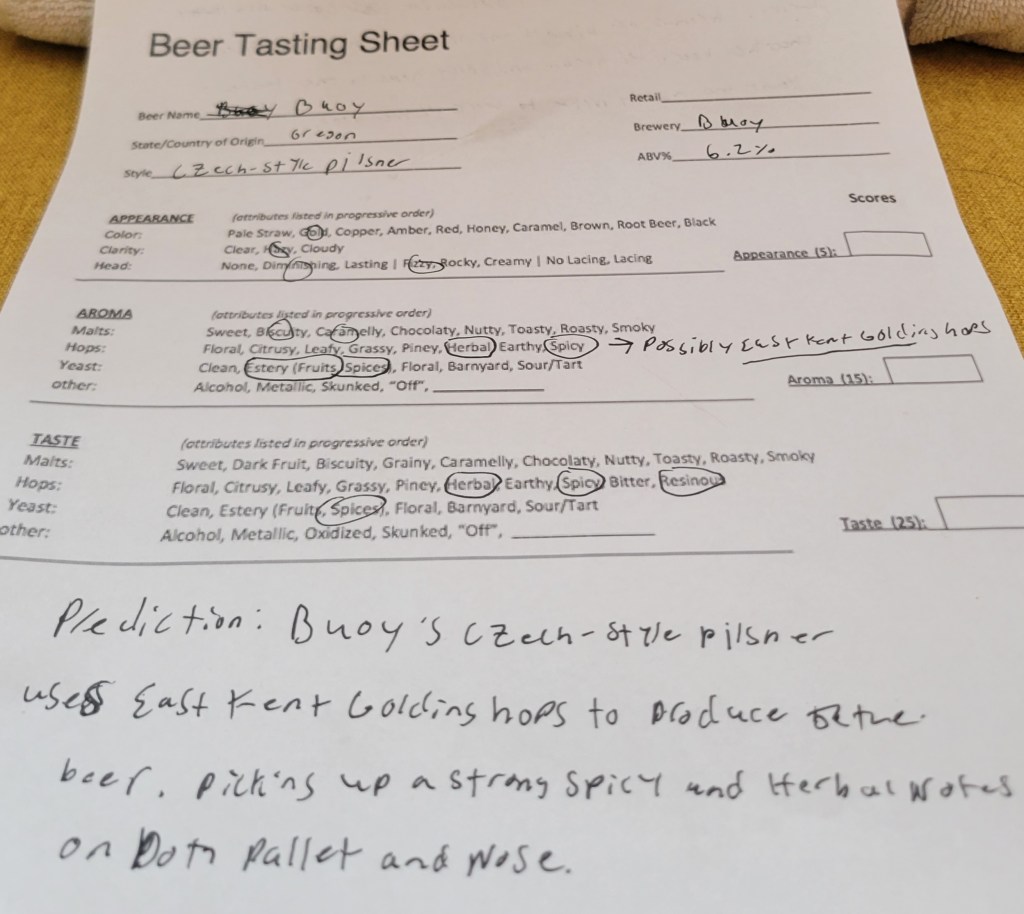 Beer Tasting Sheet
Beer Name Buoy Buoy
Retail
State/Country of Origin Oregon
Brewery Buoy
Style Czech-style pilsner
ABV% 6.2%
Scores
APPEARANCE (attributes listed in progressive order)
Color: Pale Straw, Gold, Copper, Amber, Red, Honey, Caramel, Brown, Root Beer, Black
Clarity: Clear, Hazy, Cloudy
Head: None, Diminishing, Lasting | Fizzy, Rocky, Creamy | No Lacing, Lacing
Appearance (5):
AROMA (attributes listed in progressive order)
Malts: Sweet, Biscuity, Caramelly, Chocolaty, Nutty, Toasty, Roasty, Smoky
Hops: Floral, Citrusy, Leafy, Grassy, Piney, Herbal, Earthy, Spicy → Possibly East Kent Golding hops
Yeast: Clean, Estery (Fruits, Spices), Floral, Barnyard, Sour/Tart
other: Alcohol, Metallic, Skunked, "Off",
Aroma (15):
TASTE (attributes listed in progressive order)
Malts: Sweet, Dark Fruit, Biscuity, Grainy, Caramelly, Chocolaty, Nutty, Toasty, Roasty, Smoky
Hops: Floral, Citrusy, Leafy, Grassy, Piney, Herbal, Earthy, Spicy, Bitter, Resinous
Yeast: Clean, Estery (Fruits, Spices), Floral, Barnyard, Sour/Tart
other: Alcohol, Metallic, Oxidized, Skunked, "Off",
Taste (25):
Prediction: Buoy's Czech-style pilsner
uses East Kent Golding hops to produce the
beer. picking up a strong spicy and Herbal Notes
on both pallet and Nose.